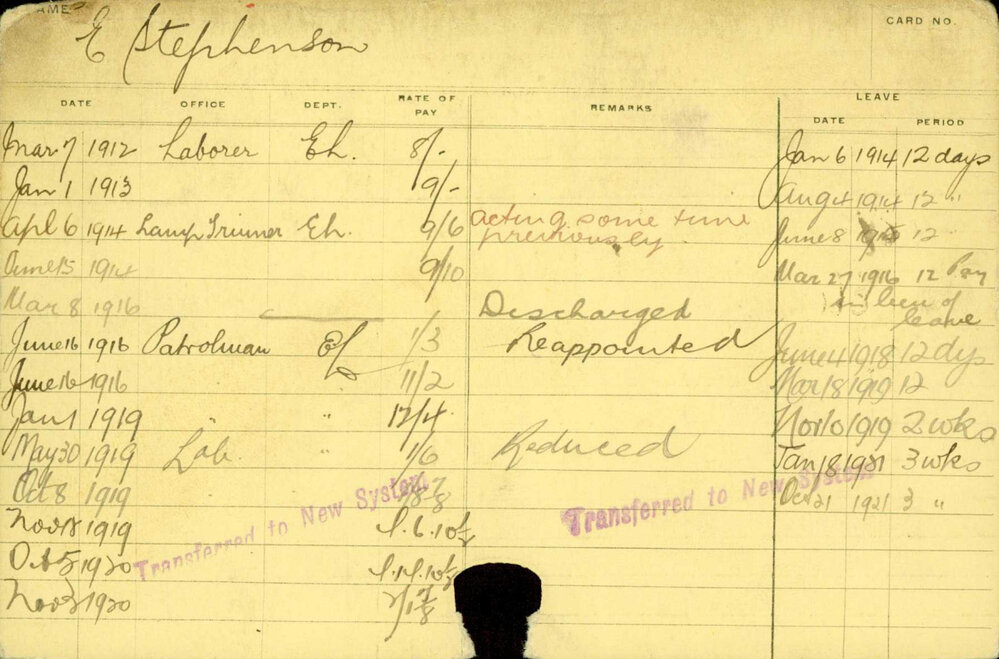 NAME
E Stephenson
CARD NO.
DATE OFFICE DEPT. RATE OF PAY REMARKS LEAVE
DATE PERIOD
Mar 7 1912 Laborer Eh. 8/- Jan 6 1914 12 days
Jan 1 1913 9/- Aug 4 1914 12 "
Apl 6 1914 Lamp Trimmer Eh. 9/6 acting some time previously. June 8 1915 12
June 15 1914 9/10 Mar 27 1916 12 Pay in lieu of leave
Mar 8 1916 Discharged
June 16 1916 Patrolman 1/3 Reappointed June 4 1918 12 dys
June 16 1916 11/2 Mar 18 1919 12
Jan 1 1919 " " 12/4 Nov 10 1919 2 wks
May 30 1919 Lab. " 1/6 Reduced Jan 18 1921 3 wks
Oct 8 1919 Oct 21 1921 3 "
Transferred to New System
Transferred to New System
Nov 1919
Oct 5 1920
Nov 1920